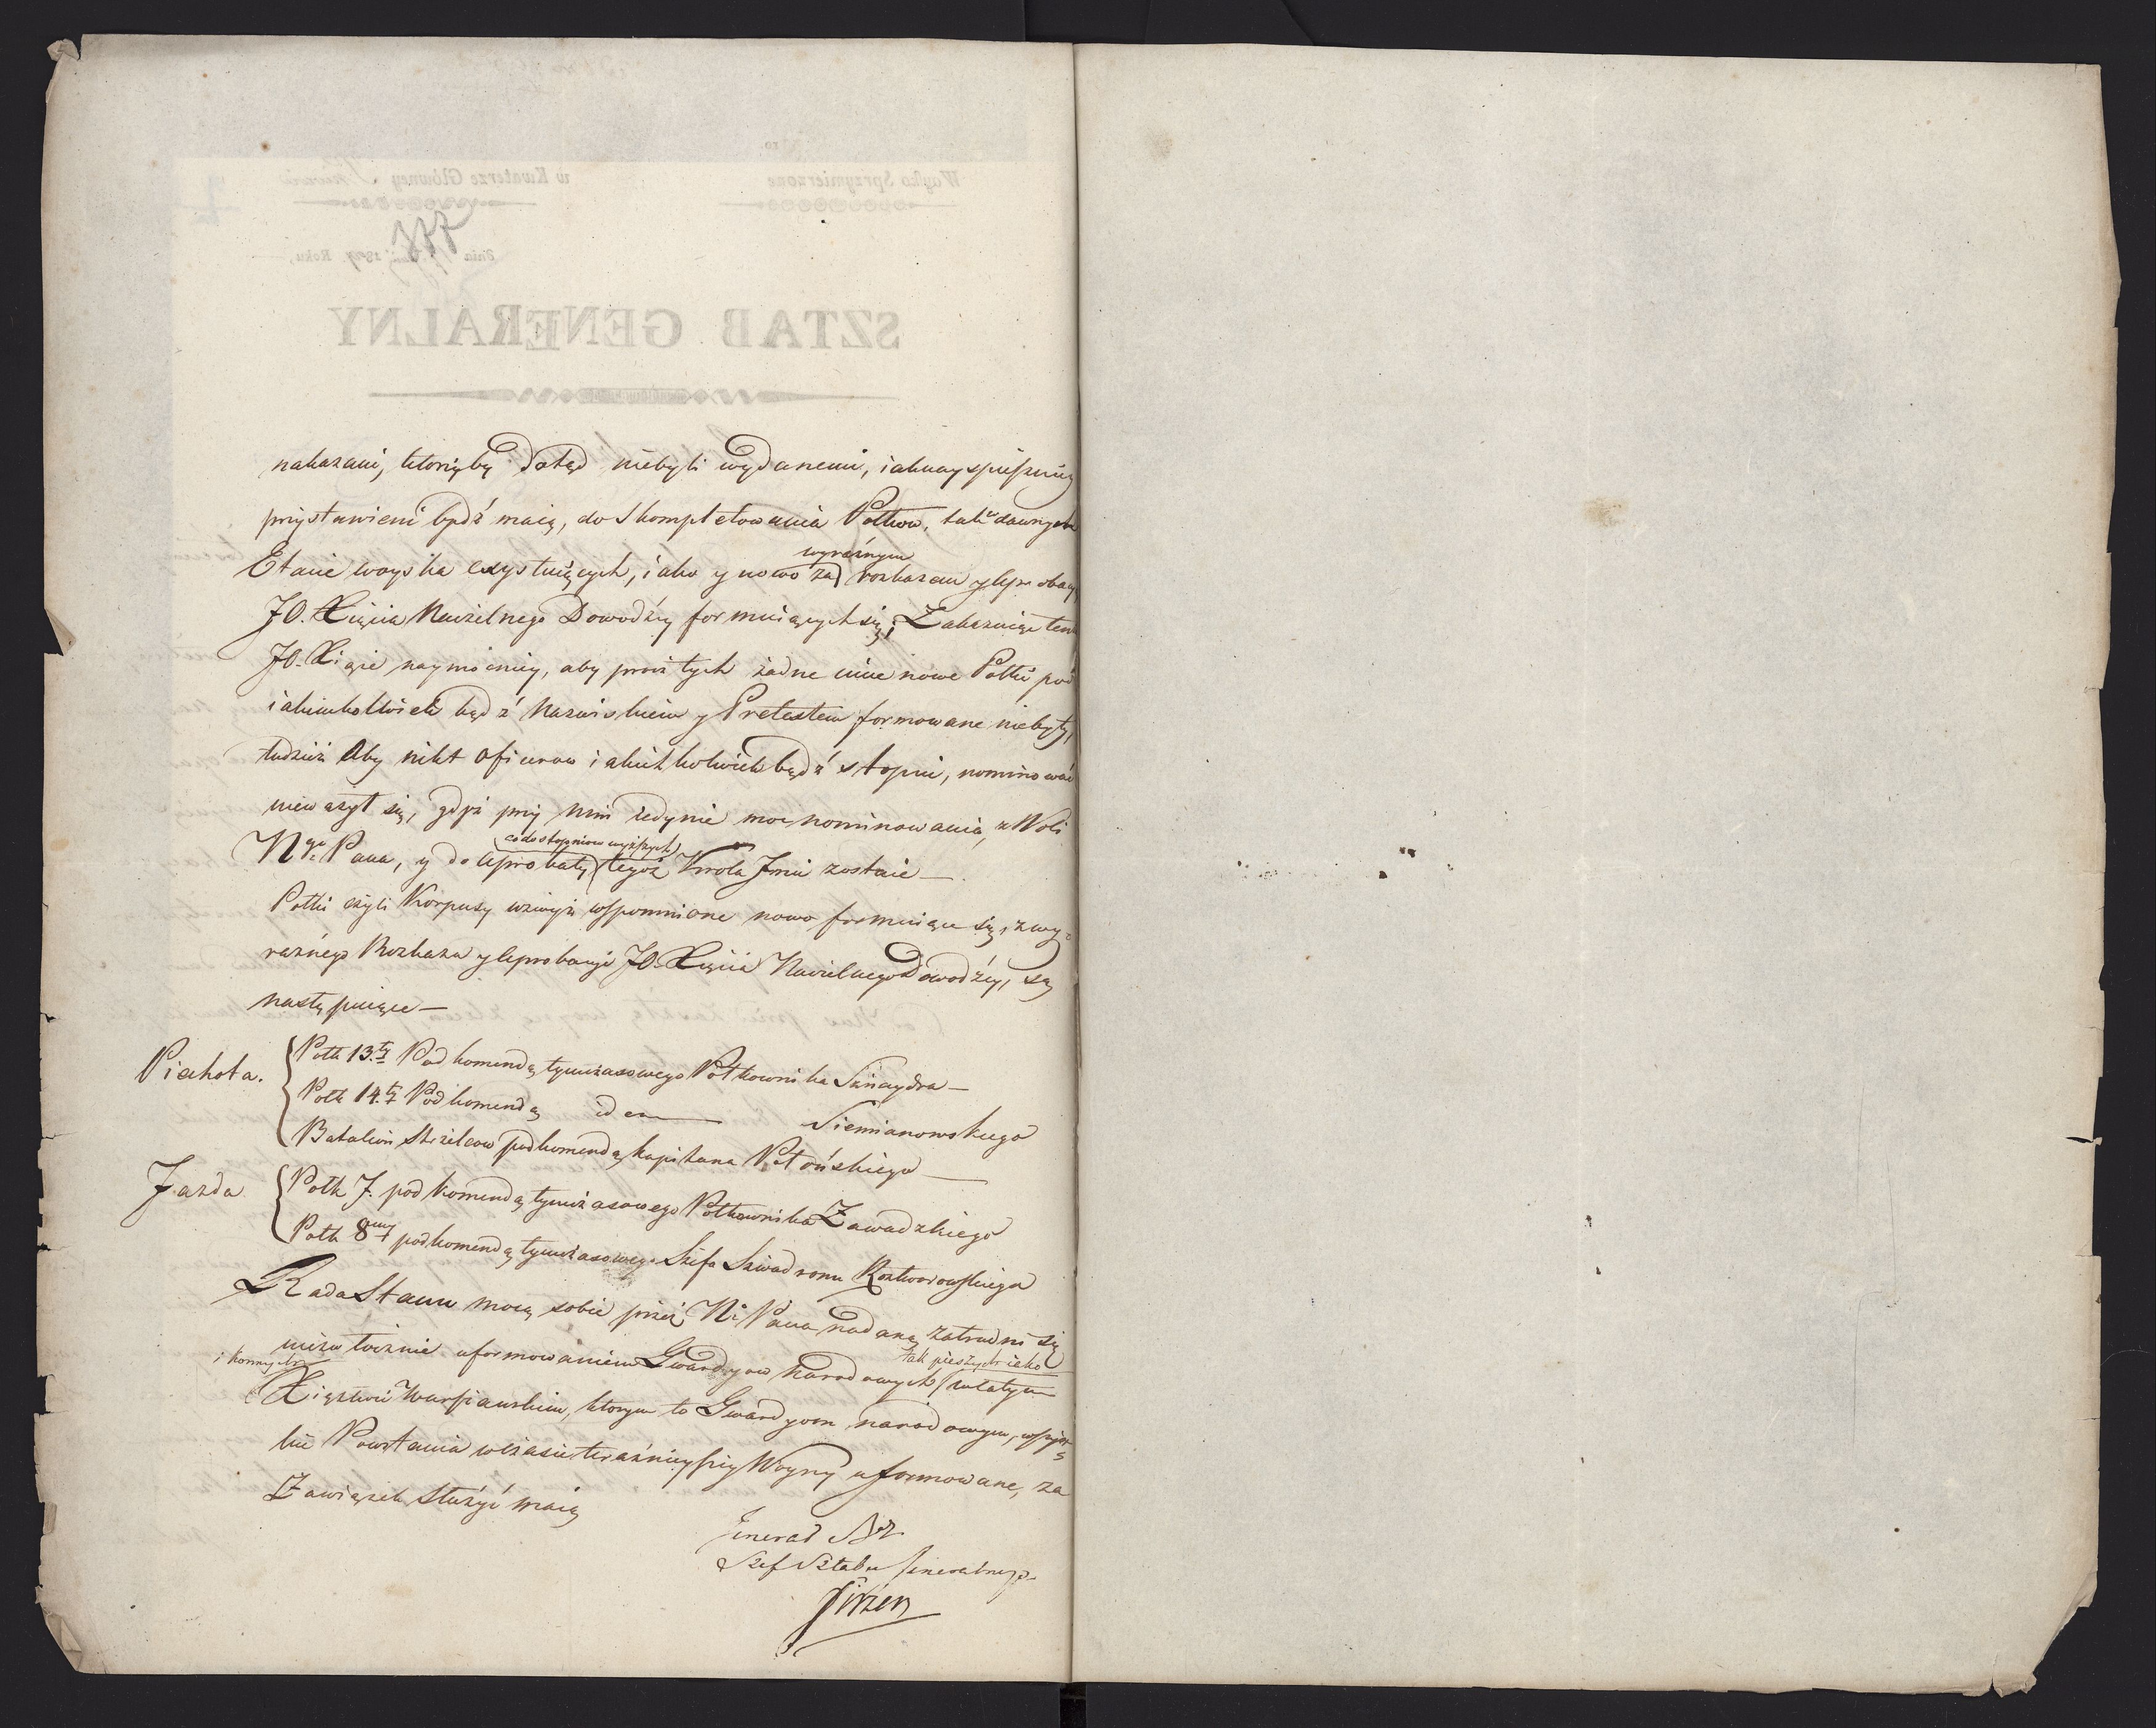 nakazani, ktorzyby dotąd niebyli wydanemi, iaknayspieszniey
przystawieni bydź maią, do skompletowania Połkow, tak dawnych
Etacie woyska exystuiących, iako y nowo za wyraźnym rozkazem y Approbacyą
JO. Xięcia Naczelnego Dowodźcy formuiących się; Zakazuie ten
JO. Xiąże naymocniey, aby procz tych żadne inne nowe Połki pod
iakimkolwiek bądź Nazwiskiem y Pretextem formowane niebyły,
tudzież Aby nikt Oficerow iakichkolwiek bądź stopni, nominować
nieważył się, gdyż przy Nim iedynie moc nominowania, z Woli
Ngo Pana, y do Aprobaty (co do stopniow wyższych) tegoż Krola Jmci zostaie —
Połki czyli Korpusy wzwyż wspomnione nowo formuiące się, z wy-
raźnego Rozkazu y Approbacyi JO. Xięcia Naczelnego Dowodźcy, są
następuiące —
Piechota.
Połk 13.ty Pod komendą tymczasowego Połkownika Sznaydra —
Połk 14.ty Pod komendą idem Siemianowskiego
Batalion Strzelcow pod komendą kapitana Płońskiego —
Jazda
Połk 7. pod komendą tymczasowego Połkownika Zawadzkiego
Połk 8my pod komendą tymczasowego Szefa Szwadronu Roztworowskiego
Rada Stanu mocą sobie przez N. Pana nadaną zatrudni się
niezwłocznie uformowaniem Gwardyow Narodowych tak pieszych iako
i konnych w całym
Xięstwie Warszawskim, ktorym to Gwardyom narodowym, wszyst-
kie Powstania w czasie teraźnieyszey Woyny uformowane, za
Zawiązek służyć maią
Jenerał
Szef Sztabu Jeneralnego
Fiszer
SZTAB GENERALNY
w Kwaterze Główney
Woysko Sprzymierzone
dnia 1809. Roku,